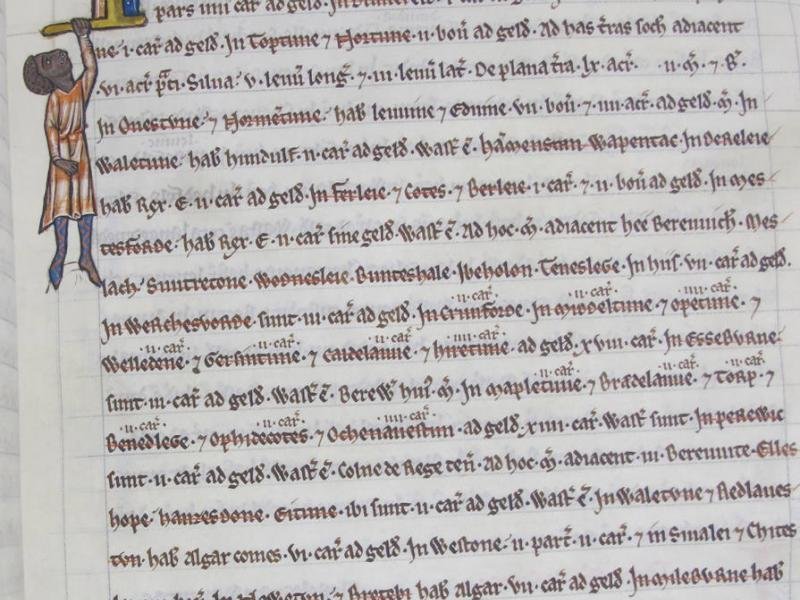 pars iiii car ad geld. In
ne·i·car̃ ad geld̃. In Toptune ⁊ Nortune·ii·boũ ad geld. Ad has t̃ras soch adiacent
·vi·acr̃ p̃ti. Silua·v·leuũ long̃·⁊·iii·leuũ lat̃. De plana t̃ra·lx·acr̃. ·ii·m̃·⁊·B̃.
In Onestune·⁊ Normẽtune· hab̃ leuuine ⁊ Eduine·vii·boũ·⁊·iiii·acr̃·ad geld·m̃·In
Waletune· hab̃ hundulf·ii·car̃ ad geld. Wast̃ ẽ. hãmenstan Wapentac·In Dereleie
hab̃ Rex·E·ii·car̃ ad geld. In ferleie·⁊ Cotes·⁊ Berleie·i·car̃·⁊·ii·boũ ad geld. In Mes
tesforde· hab̃ Rex·E·ii·car̃ sine geld. Wast̃ ẽ. Ad hoc·m̃·adiacent hee Bereuuich̃. Mes
lach· Snitretone·Wodnesleie·Bunteshale·Ibeholon·Teneslege·In his·vii·car̃ ad geld.
In Werchesvorde·sunt·iii·car̃ ad geld. In Crunforde·In Middeltune ⁊ opetune·⁊
·ii·car̃ ·ii·car̃ ·iiii·car̃
Welledene·⁊ Gersintune·⁊ Caldelauue·⁊ hiretune·ad geld·xviii·car̃. In Esseburne
·ii·car̃ ·ii·car̃ ·iiii·car̃
sunt·iii·car̃ ad geld. Wast̃ ẽ. Berew̃ hui᷒·m̃·In Mapletune·⁊ Bradelauue·⁊ Torp·⁊
·ii·car̃ ·ii·car̃ ·ii·car̃
Benedlege·⁊ Ophidecotes·⁊ Ochenauestun·ad geld·xiiii·car̃. Wast̃ sunt. In perewic
·ii·car̃ ·ii·car̃ ·iiii·car̃
sunt·ii·car̃ ad geld. Wast̃ ẽ. Colne de Rege teñ·Ad hoc·m̃·adiacent·iii·Bereuuite·Elles
hope· hanzedone·Eitune·ibi sunt·ii·car̃ ad geld. Wast̃ ẽ. In Waletune ⁊ Redlaues
ton· hab̃ Algar comes·vi·car̃ ad geld. In Westone·ii·part̃·ii·car̃·⁊ in Smalei ⁊ Chites
hab̃ Algar·vii·car̃ ad geld. In Mileburne hab̃